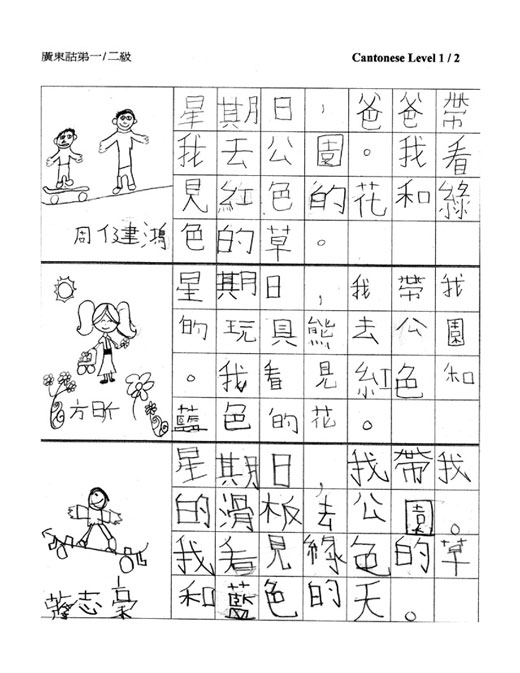 廣東話第一/二級
Cantonese Level 1 / 2
星期日，爸爸帶
我去公園。我看
見紅色的花和綠
色的草。
星期日，我帶我
的玩具熊去公園
。我看見紅色和
藍色的花。
方昕
星期日，我帶我
的滑板去公園。
我看見綠色的草
和藍色的天。